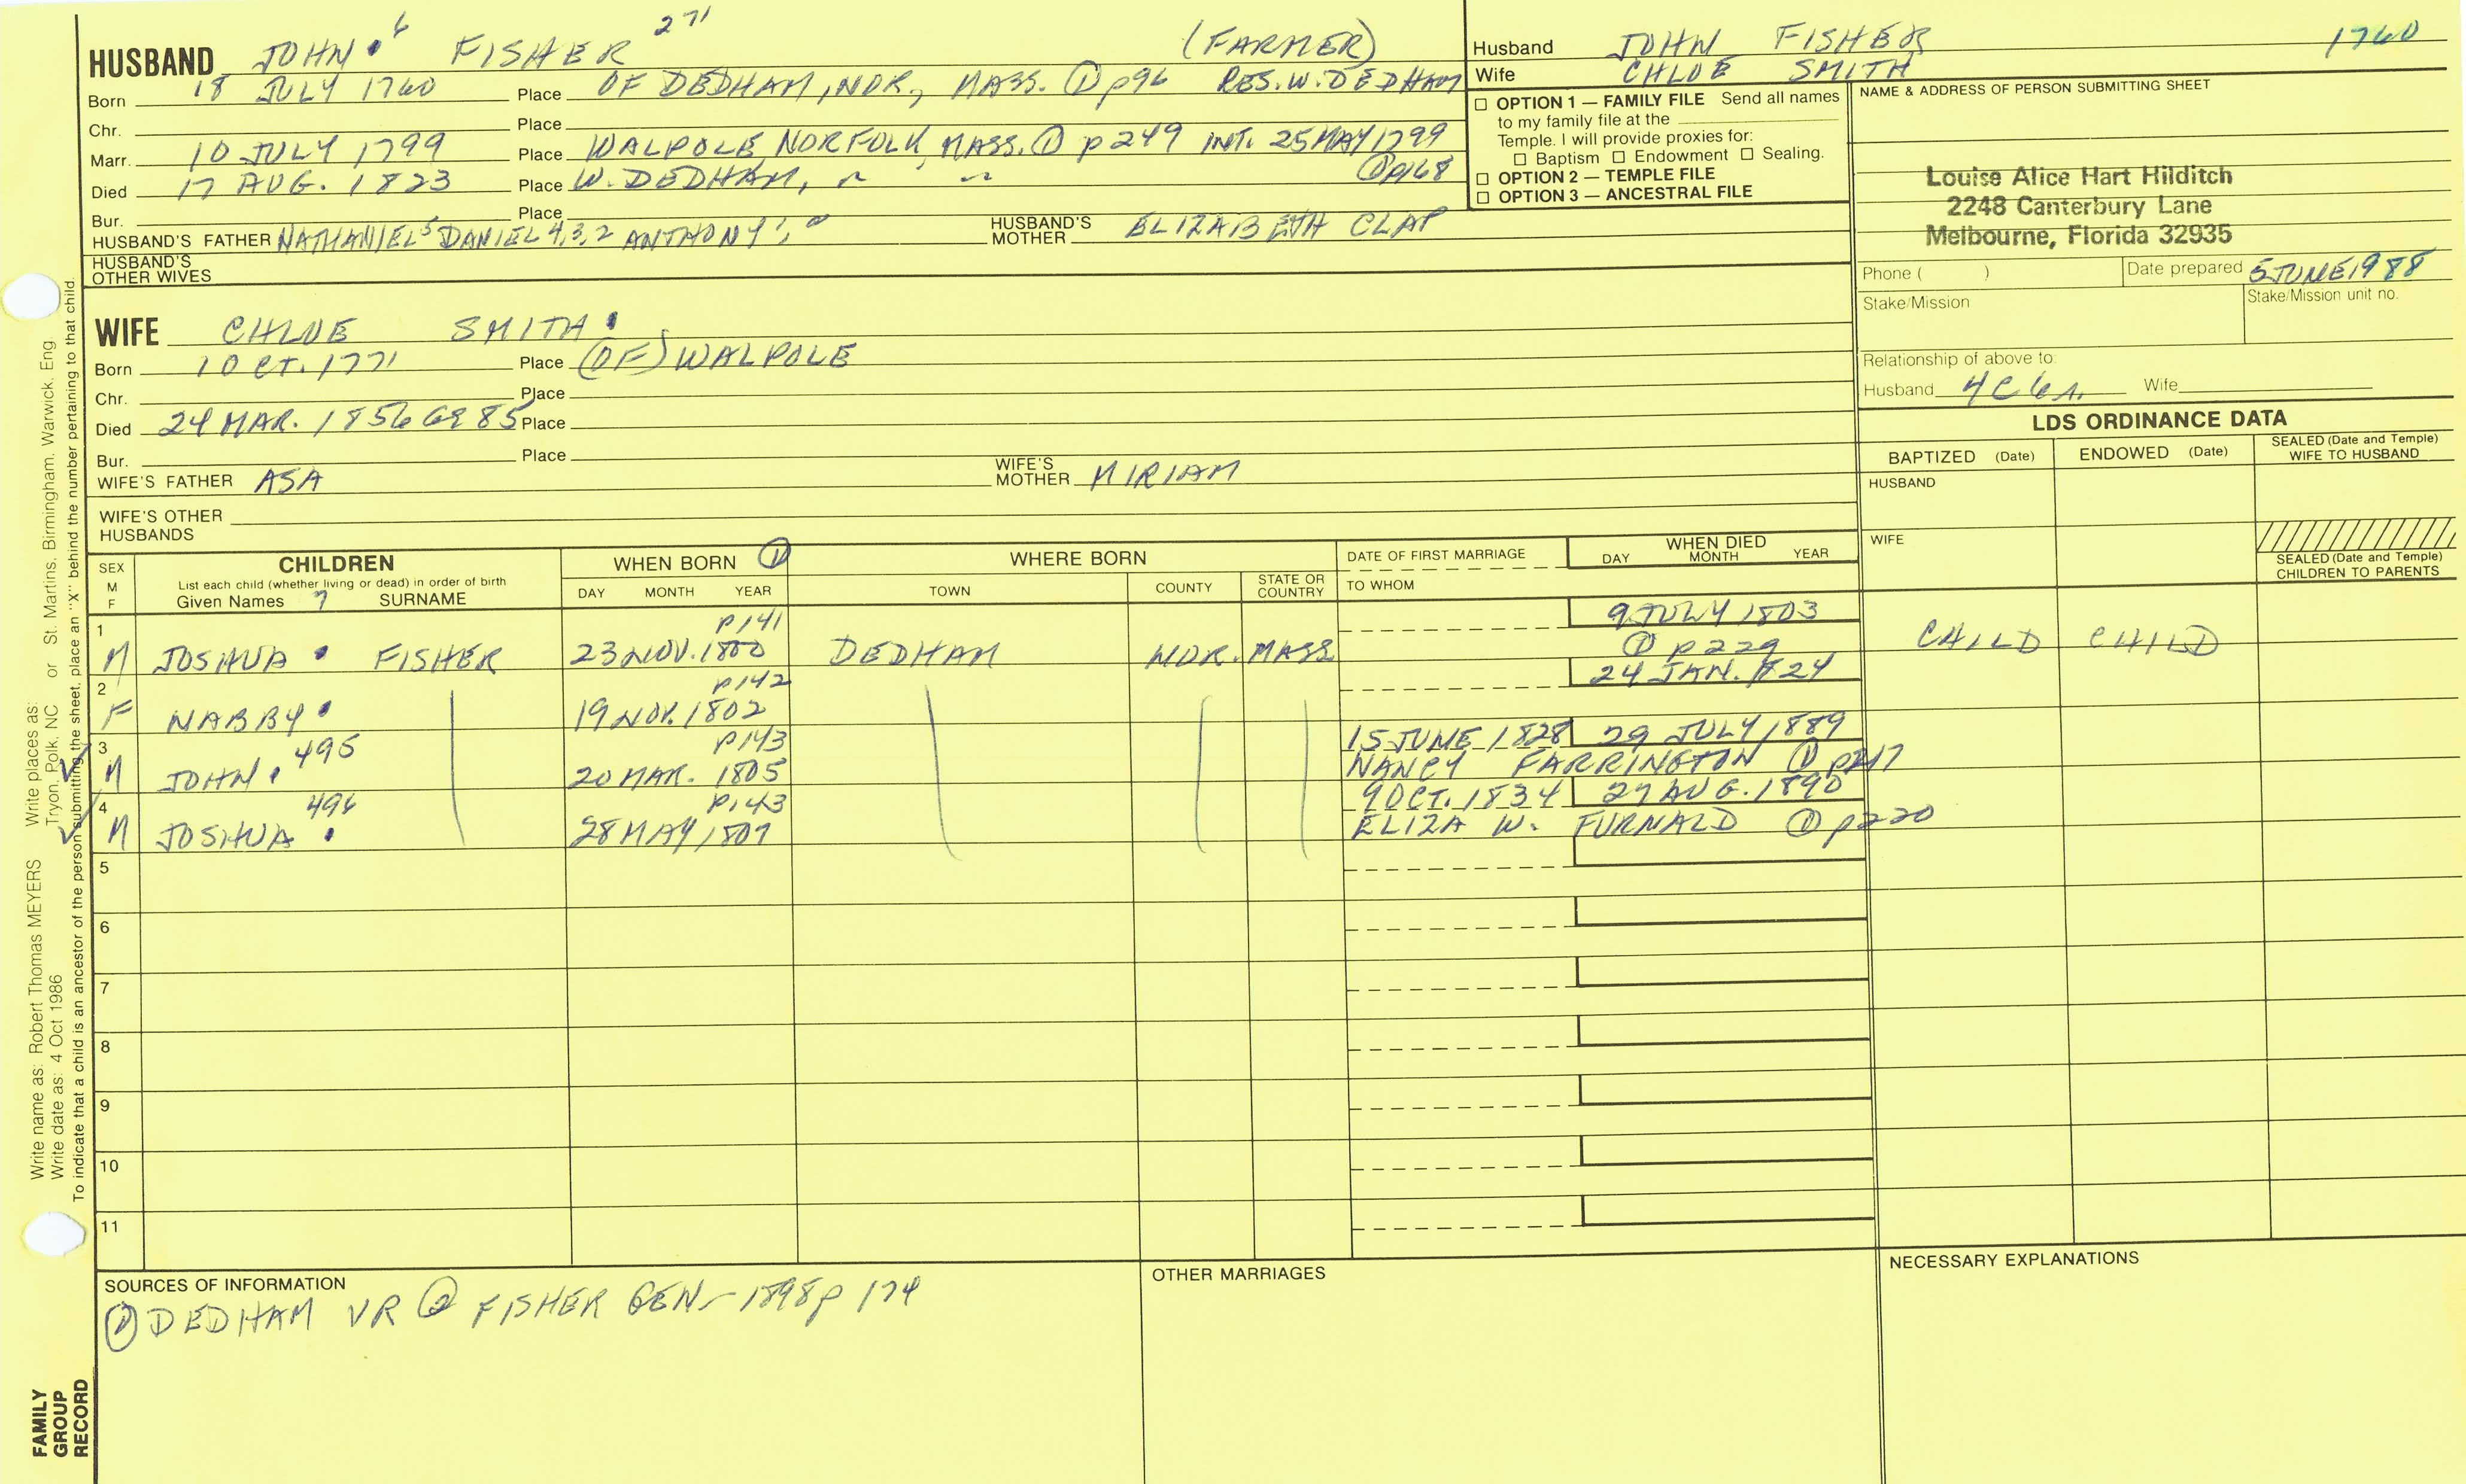 HUSBAND JOHN 6 FISHER 271 (FARMER)
Born 18 JULY 1760 Place OF DEDHAM, NOR., MASS. ① p96 RES. W. DEDHAM
Chr. Place
Marr. 10 JULY 1799 Place WALPOLE, NORFOLK, MASS. ① p 249 INT. 25 MAY 1799
Died 17 AUG. 1823 Place W. DEDHAM, ~ ~ ① p168
Bur. Place
HUSBAND'S FATHER NATHANIEL 5 DANIEL 4,3,2 ANTHONY 1,0 HUSBAND'S MOTHER ELIZABETH CLAP
HUSBAND'S OTHER WIVES
Husband JOHN FISHER 1760
Wife CHLOE SMITH
☐ OPTION 1 — FAMILY FILE Send all names
to my family file at the
Temple. I will provide proxies for:
☐ Baptism ☐ Endowment ☐ Sealing.
☐ OPTION 2 — TEMPLE FILE
☐ OPTION 3 — ANCESTRAL FILE
NAME & ADDRESS OF PERSON SUBMITTING SHEET
Louise Alice Hart Hilditch
2248 Canterbury Lane
Melbourne, Florida 32935
Phone ( ) Date prepared 5 JUNE 1988
Stake/Mission Stake/Mission unit no.
Relationship of above to:
Husband 4C6r. Wife
WIFE CHLOE SMITH
Born 1 OCT. 1771 Place (OF) WALPOLE
Chr. Place
Died 24 MAR. 1856 85 Place
Bur. Place
WIFE'S FATHER ASA WIFE'S MOTHER MIRIAM
WIFE'S OTHER HUSBANDS
LDS ORDINANCE DATA
BAPTIZED (Date) ENDOWED (Date) SEALED (Date and Temple) WIFE TO HUSBAND
HUSBAND
WIFE
SEALED (Date and Temple) CHILDREN TO PARENTS
SEX M F CHILDREN List each child (whether living or dead) in order of birth Given Names 7 SURNAME
WHEN BORN ① DAY MONTH YEAR
WHERE BORN TOWN COUNTY STATE OR COUNTRY
DATE OF FIRST MARRIAGE TO WHOM
WHEN DIED DAY MONTH YEAR
1 p141 9 JULY 1803
M JOSHUA FISHER 23 NOV. 1800 DEDHAM NOR. MASS ① p229 CHILD CHILD
2 p142 24 JAN. 1824
F NABBY 19 NOV. 1802
3 495 p143 15 JUNE 1828 29 JULY 1889
M JOHN 20 MAR. 1805 NANCY FARRINGTON ① p217
4 496 p143 9 OCT. 1834 27 AUG. 1890
M JOSHUA 28 MAY 1807 ELIZA W. FURNALD ① p220
5
6
7
8
9
10
11
SOURCES OF INFORMATION
① DEDHAM VR ② FISHER GEN – 1898 p 174
OTHER MARRIAGES
NECESSARY EXPLANATIONS
Write name as: Robert Thomas MEYERS Write places as:
Write date as: 4 Oct 1986 Tryon, Polk, NC or St. Martins, Birmingham, Warwick, Eng
To indicate that a child is an ancestor of the person submitting the sheet, place an "X" behind the number pertaining to that child.
FAMILY
GROUP
RECORD